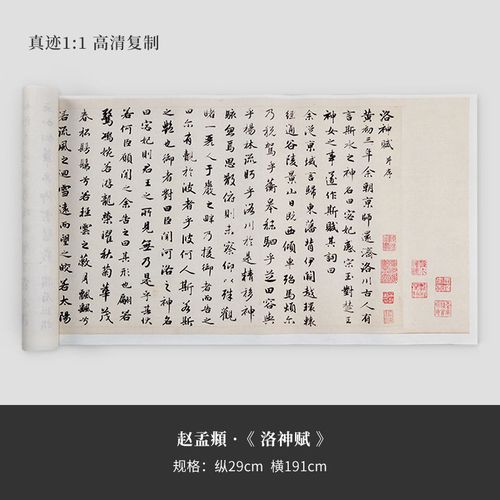 真迹1:1 高清复制
洛神赋 并序
黄初三年余朝京师還濟洛川古人有
言斯水之神名曰宓妃感宋玉對楚王
神女之事遂作斯賦其詞曰
余從京域言歸東藩背伊闕越轘轅
經通谷陵景山日既西傾車殆馬煩尔
乃税駕乎蘅皋秣駟乎芝田容與
乎楊林流眄乎洛川於是精移神
駭忽焉思散俯則未察仰以殊觀
睹一麗人于巖之畔乃援御者而告之
曰尔有覿於彼者乎彼何人斯若斯
之艷也御者對曰臣聞河洛之神名
曰宓妃則君王之所見無乃是乎其状
若何臣願聞之余告之曰其形也翩若
驚鴻婉若游龍榮濯秋菊華茂
春松髣髴兮若輕雲之蔽月飄飖兮
若流風之迴雪遠而望之皎若太陽
赵孟頫·《 洛神赋 》
规格：纵29cm 横191cm